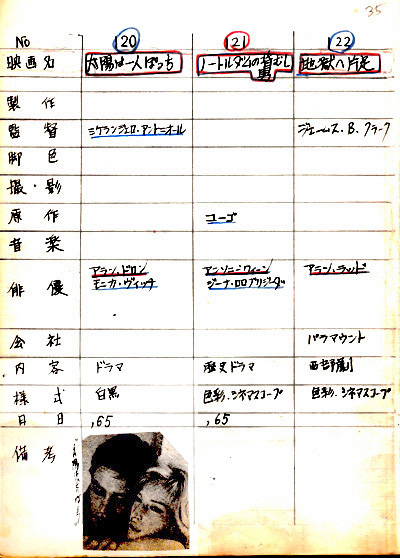 35
No 120 121 122
映画名 太陽は一人ぼっち ノートルダムのせむし男 地獄へ片足
製作
監督 ミケランジェロ・アントニオール ジェームス.B.クラーク
脚色
撮・影
原作 ユーゴ
音楽
俳優 アラン.ドロン アンソニー・クィーン アラン.ラッド
モニカ.ヴィッチ ジーナ.ロロブリジーダ
会社 パラマウント
内容 ドラマ 歴史ドラマ 西部劇
様式 白黒 色彩.シネマスコープ 色彩.シネマスコープ
月日 ,65 ,65
備考